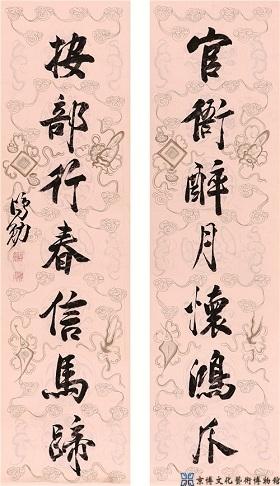 官衙醉月懷鴻爪
按部行春信馬蹄
京博文化藝術博物館